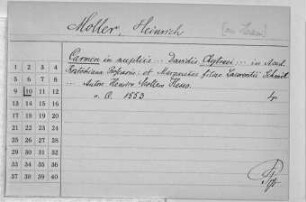 Moller, Heinrich
Carmen in nuptiis ... Davidis Chytraei ... in Acad.
et Margaritae filiae Laurentii Schmit
... Autor Henrico Mollero Hesso.
s. l. 1553 4°
1 2 3 4
5 6 7 8
9 10 11 12
13 14 15 16
17 18 19 20
21 22 23 24
25 26 27 28
29 30 31 32
33 34 35 36
37 38 39 40